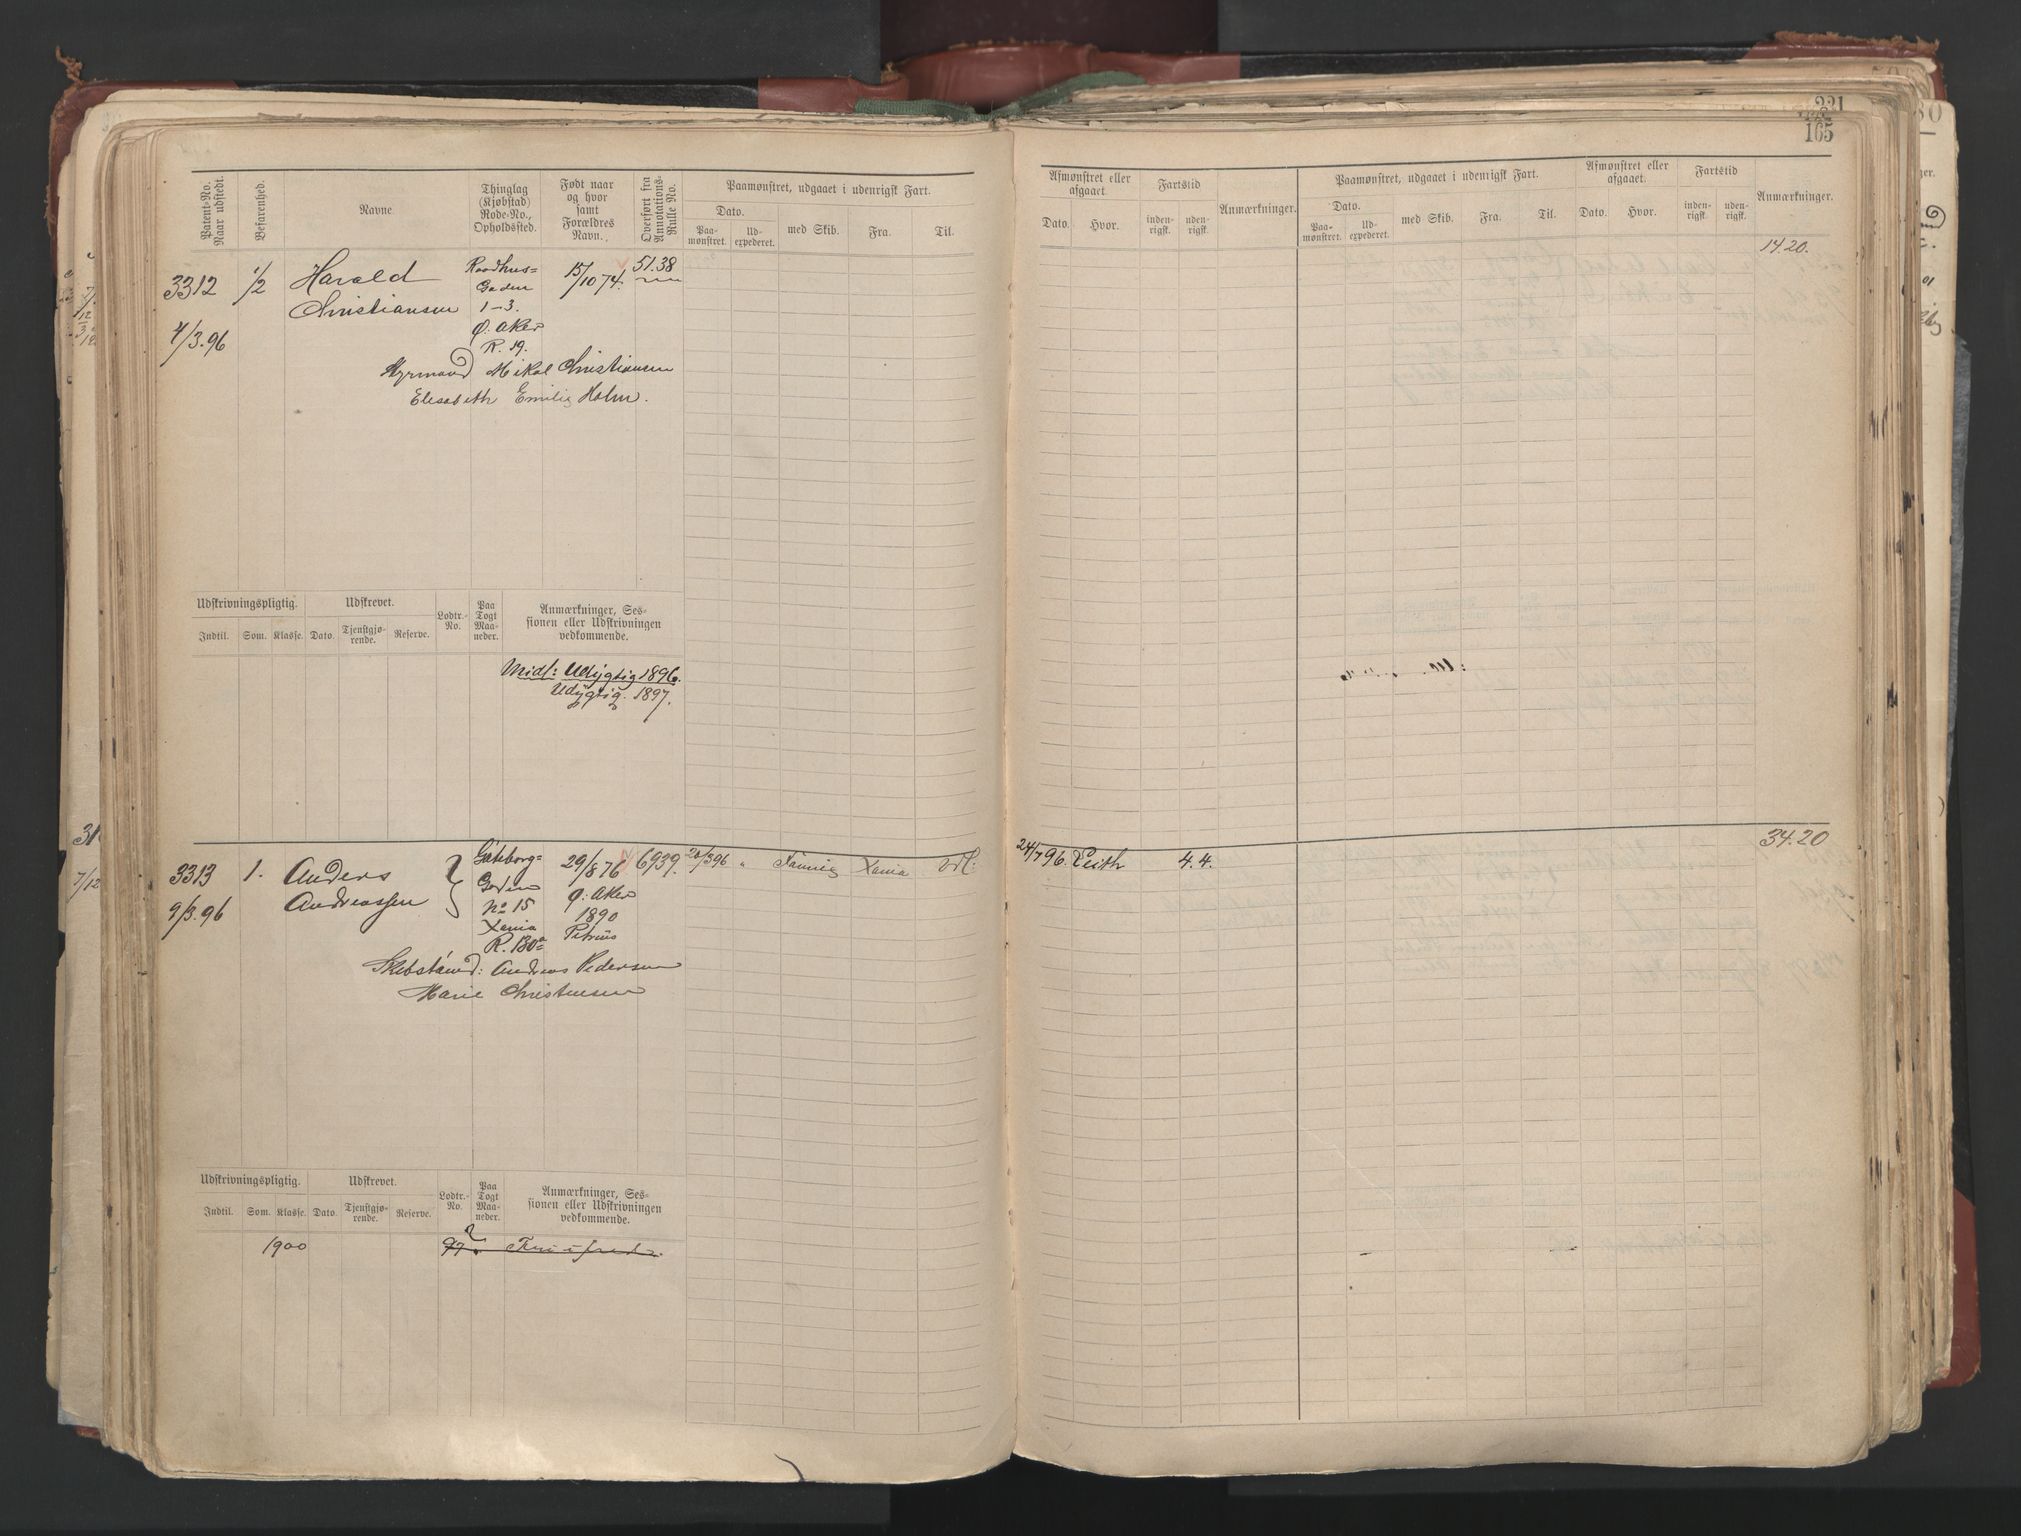 221
165
Patent-No. Naar udstedt.
Befarenhed.
Navne
Thinglag (Kjøbstad) Rode-No., Opholdssted.
Født naar og hvor samt Forældres Navn.
Overført fra Annotations-Rulle No.
Paamønstret, udgaaet i udenrigsk Fart.
Dato.
Paa-mønstret.
Ud-expederet.
med Skib.
Fra.
Til.
Afmønstret eller afgaaet.
Dato.
Hvor.
Fartstid
inden-rigsk.
uden-rigsk.
Anmærkninger.
Paamønstret, udgaaet i udenrigsk Fart.
Dato.
Paa-mønstret.
Ud-expederet.
med Skib.
Fra.
Til.
Afmønstret eller afgaaet.
Dato.
Hvor.
Fartstid
inden-rigsk.
uden-rigsk.
Anmærkninger.
1420.
3312
4/3.96
1/2
Harald
Christiansen
Raadhus=
Gaden
1–3.
Ø: Aker
R. 19.
15/10 74.
51.38
Styrmand Mikal Christiansen
Elisabeth Emilie Holm.
Udskrivningspligtig.
Indtil.
Som.
Klasse.
Udskrevet.
Dato.
Tjenstgjø-rende.
Reserve.
Lodtr.-No.
Paa Togt Maa-neder.
Anmærkninger, Ses-
sionen eller Udskrivningen
vedkommende.
Midl: Udygtig 1896.
Udygtig. 1897.
3420
3313
9/3.96
1.
Anders
Andreassen
Gøteborg=
Gaden
No 15
Xania
R. 130a
29/8 76
Ø: Aker
1890
Petrus
6939.
20/3 96
"
Xania
Udl:
24/7 96.
Leith
4.4.
Skibstømd: Andreas Pedersen
Marie Christensen
Udskrivningspligtig.
Indtil.
Som.
Klasse.
Udskrevet.
Dato.
Tjenstgjø-rende.
Reserve.
Lodtr.-No.
Paa Togt Maa-neder.
Anmærkninger, Ses-
sionen eller Udskrivningen
vedkommende.
1900
97